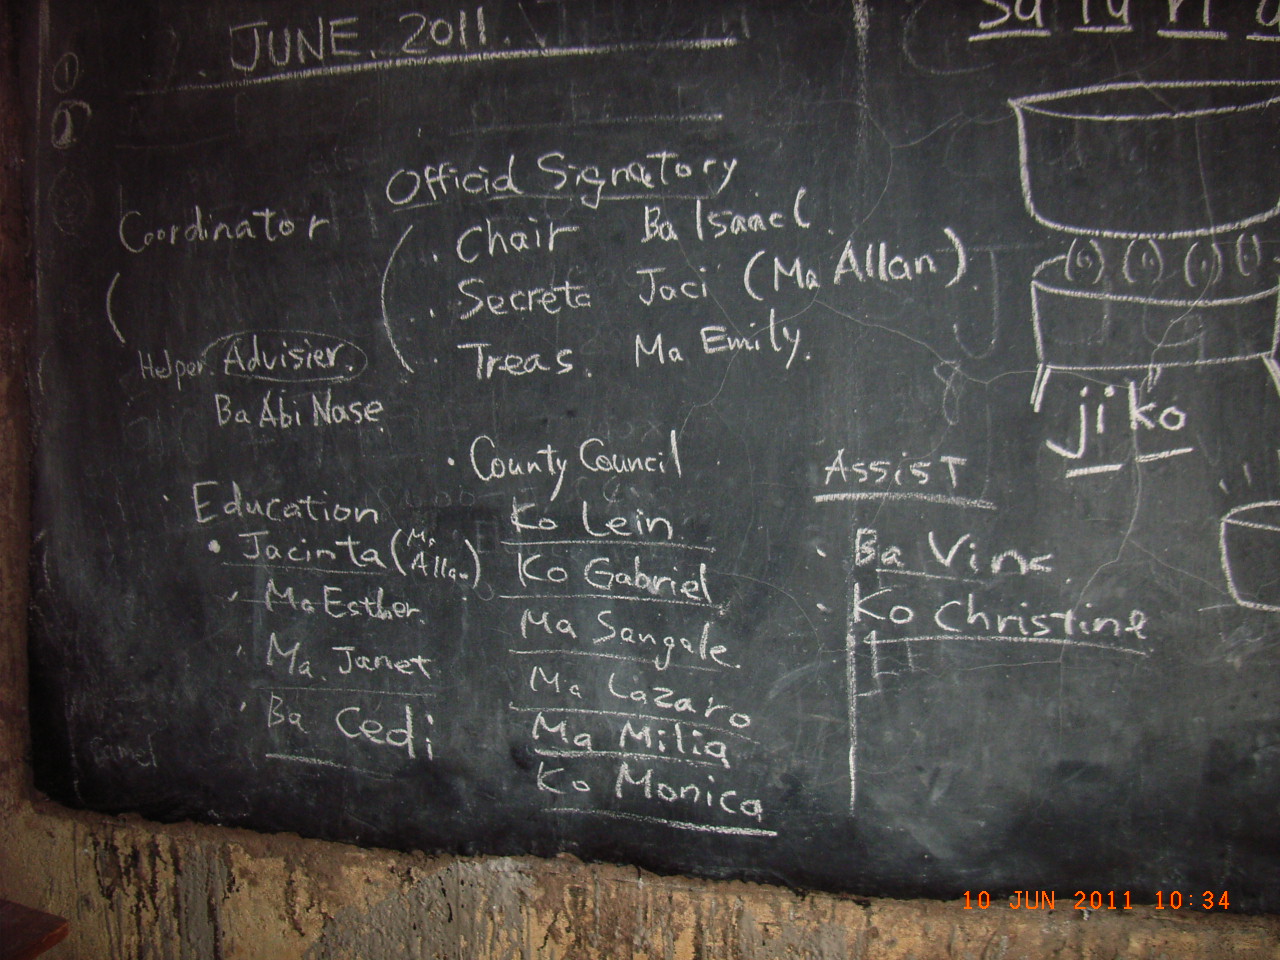 JUNE. 2011.
sa fu ri a
Officid Signatory
Coordinator
Chair Ba Isaael.
Secreta Jaci (Ma Allan).
Treas. Ma Emily.
Helper. Advisier.
Ba Abi Nase.
jiko
County Council
Assist
Education
Jacinta (Ma Allan)
Ma Esther.
Ma. Janet
Ba Cedi
Ko Lein
Ko Gabriel
Ma Sangale.
Ma Lazaro
Ma Milia
Ko Monica
Ba Vinc.
Ko Christine
10 JUN 2011 10:34